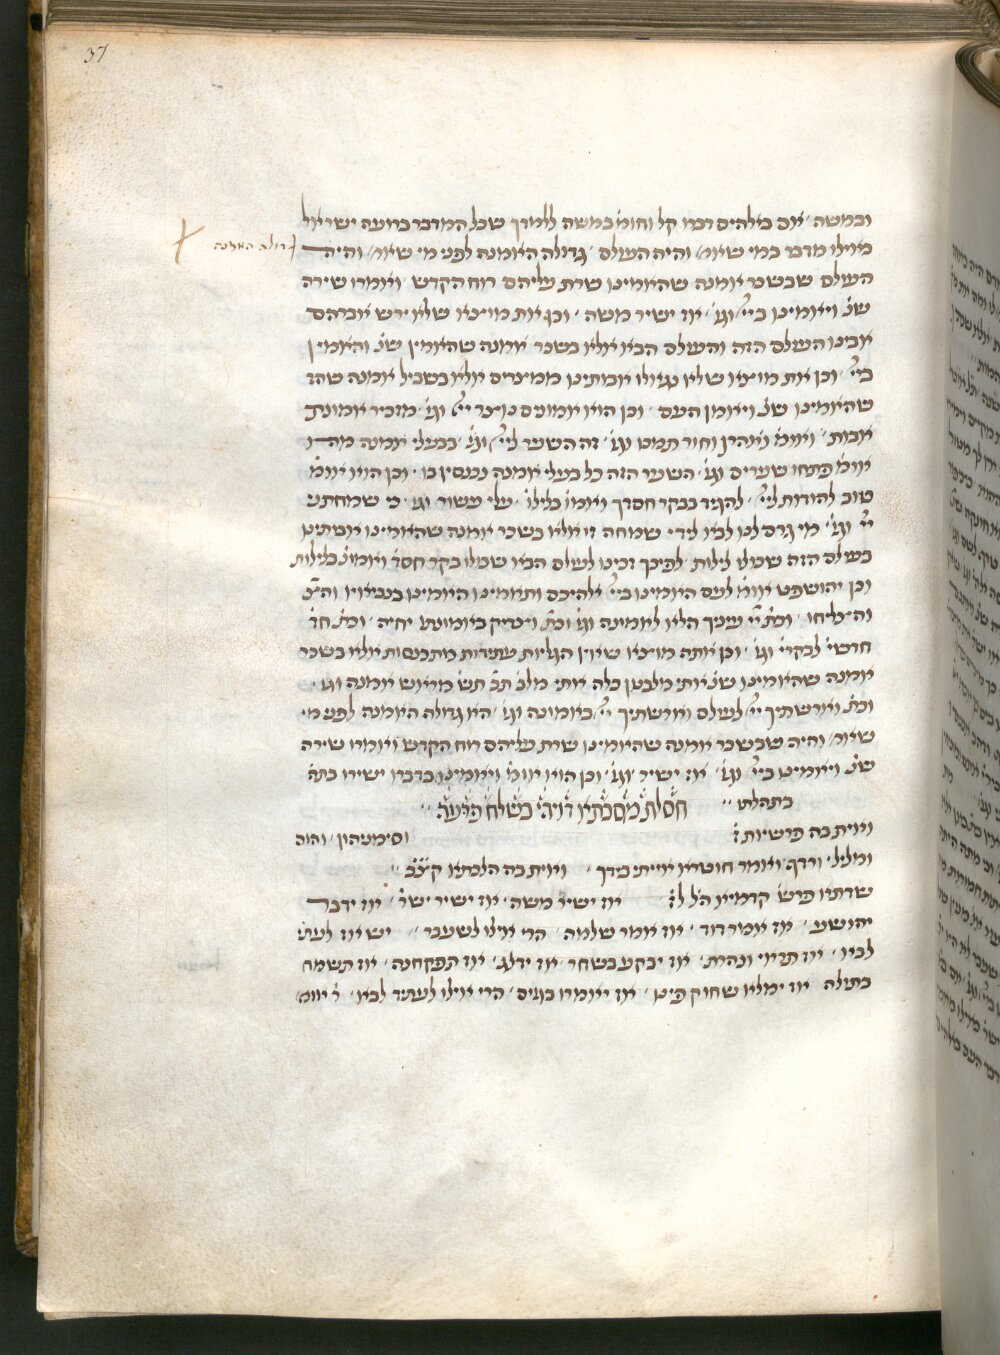 37
ובמשה ׳ אם באלהים דברו קל וחומ׳ במשה ללמדך שכל המדבר ברועה ישראל
כאילו מדבר במי שאמ׳ והיה העולם ׳ גדולה האמנה לפני מי שאמ׳ והיה
גדולה האמנה
העולם שבשכר אמנה שהאמינו שרת עליהם רוח הקדש ואמרו שירה
שנ׳ ויאמינו ביי׳ וגו׳ ׳ אז ישיר משה ׳ וכן את מוצא שלא ירש אברהם
אבינו העולם הזה והעולם הבא אלא בשכר אמנה שהאמין שנ׳ והאמין
ביי׳ ׳ וכן את מוצא שלא נגאלו אבותינו ממצרים אלא בשביל אמנה שהד
שהאמינו שנ׳ ויאמן העם ׳ וכן הוא אמונים נוצר יי׳ וגו׳ ׳ מזכיר אמונת
אבות ׳ ואומ׳ ואהרן וחור תמכו וגו׳ ׳ זה השער ליי׳ וגו׳ ׳ בבעלי אמנה מהו
אומ׳ פתחו שערים וגו׳ ׳ השער הזה כל בעלי אמנה נכנסין בו ׳ וכן הוא אומ׳
טוב להודות ליי׳ ׳ להגיד בבקר חסדך ואמו׳ בלילו׳ ׳ עלי עשור וגו׳ כי שמחתני
יי׳ וגו׳ ׳ מי גרם לנו לבא לידי שמחה זו אלא בשכר אמנה שהאמינו אבותינו
בעולם הזה שכולו לילות ׳ לפיכך זכינו לעולם הבא שכולו בקר חסד׳ ואמונ׳ בלילות
וכן יהושפט אומ׳ לעם האמינו ביי׳ אלהיכם ותאמינו האמינו בנביאיו והצ׳
והצליחו ׳ וכת׳ יי׳ עיניך הלא לאמונה וגו׳ וכת׳ וצדיק באמונתו יחיה ׳ וכת׳ חד׳
חדשי׳ לבקרי׳ וגו׳ ׳ וכן אתה מוצא שאין הגליות עתידות מתכנסות אלא בשכר
אמנה שהאמינו שנ׳ אתי מלבנון כלה אתי מלב׳ תב׳ תש׳ מראש אמנה וגו׳ ׳
וכת׳ וארשתיך לי׳ לעולם וארשתיך לי׳ באמונה וגו׳ ׳ הא גדולה האמנה לפני מי
שאמ׳ והיה שבשכר אמנה שרת עליהם רוח הקדש ואמרו שירה
שנ׳ ויאמינו ביי׳ וגו׳ ׳ אז ישיר וגו׳ ׳ וכן הוא אומ׳ ויאמינו בדבריו ישירו כתה׳
כתהלתו ׳׳ חסלת מסכתא דויהי בשלח פרעה ׳׳
ואית בה פרשיות ז׳ וסימניהון ׳ והוה
ומליל ׳ ורדף ׳ ואמר חוטרא אייתי בידך ׳ ואית בה הלכתא קצב ׳׳
שרתא פרש׳ קדמיא הל׳ לז׳ אז ישיר משה ׳ אז ישיר ישר׳ ׳ אז ידבר
יהושע ׳ אז אמר דוד ׳ אז אמר שלמה ׳ הרי אילו לשעבר ׳ יש אז לעת׳
לבא ׳ אז תראי ונהרת ׳ אז יבקע כשחר ׳ אז ידלג ׳ אז תפקחנה ׳ אז תשמח
בתולה אז ימלא שחוק פינו ׳ אז יאמרו בגוים ׳ הרי אילו לעתיד לבא ׳ ר׳ אומ׳